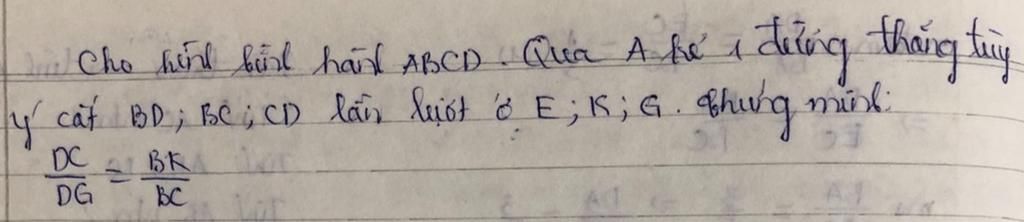 Cho hình bình hành ABCD. Qua A kẻ 1 đường thẳng tùy
ý cắt BD; BC; CD lần lượt ở E; K; G. Chứng minh:
DC/DG = BK/BC